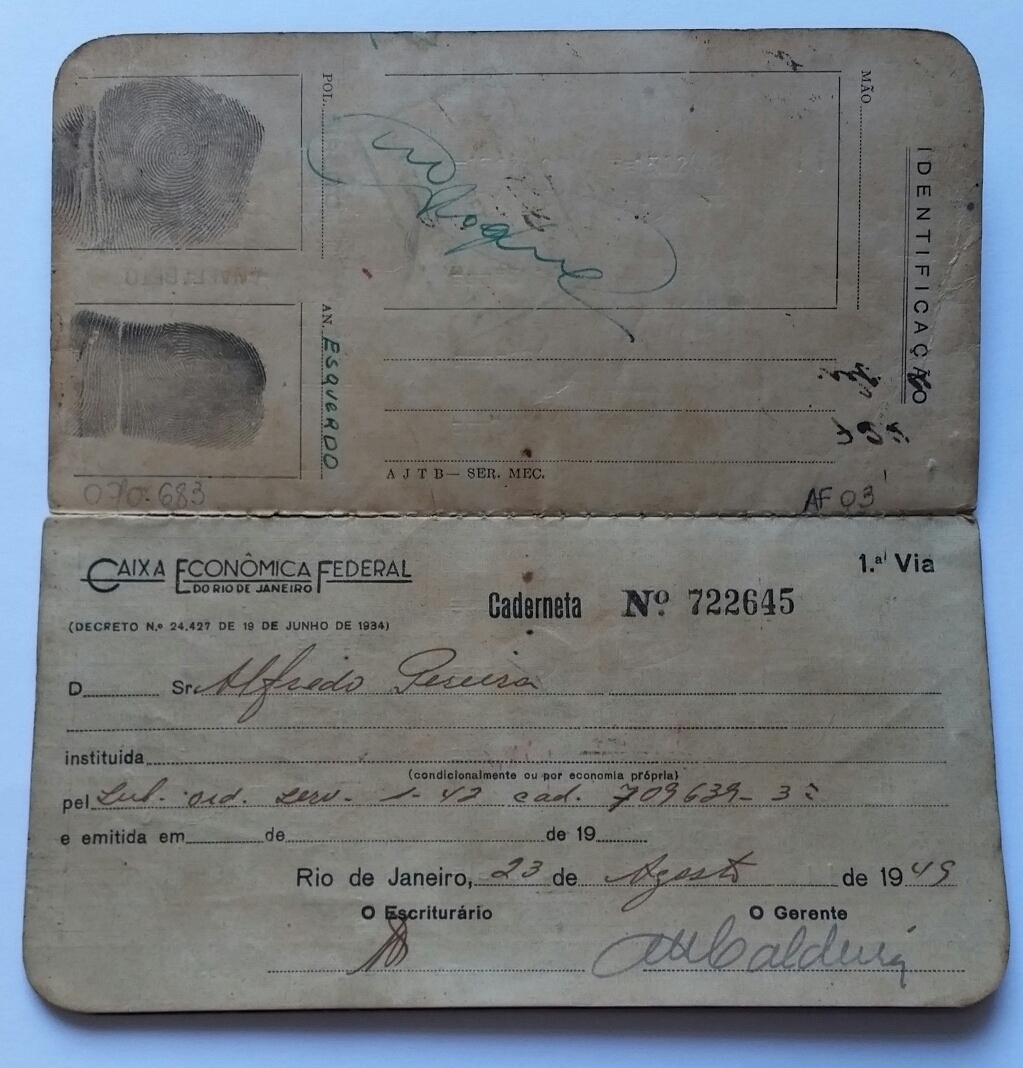 IDENTIFICAÇÃO
MÃO
POL.
AN. ESQUERDO
A J T B — SER. MEC.
070.683
AF 03
CAIXA ECONÔMICA FEDERAL
DO RIO DE JANEIRO
1.ª Via
Caderneta Nº 722645
(DECRETO N.º 24.427 DE 19 DE JUNHO DE 1934)
D Sr. Alfredo Pereira
instituida
(condicionalmente ou por economia própria)
pel Sub. ord. serv. 1-42 cad. 709639-3ª
e emitida em de de 19
Rio de Janeiro, 23 de Agosto de 1949
O Escriturário O Gerente